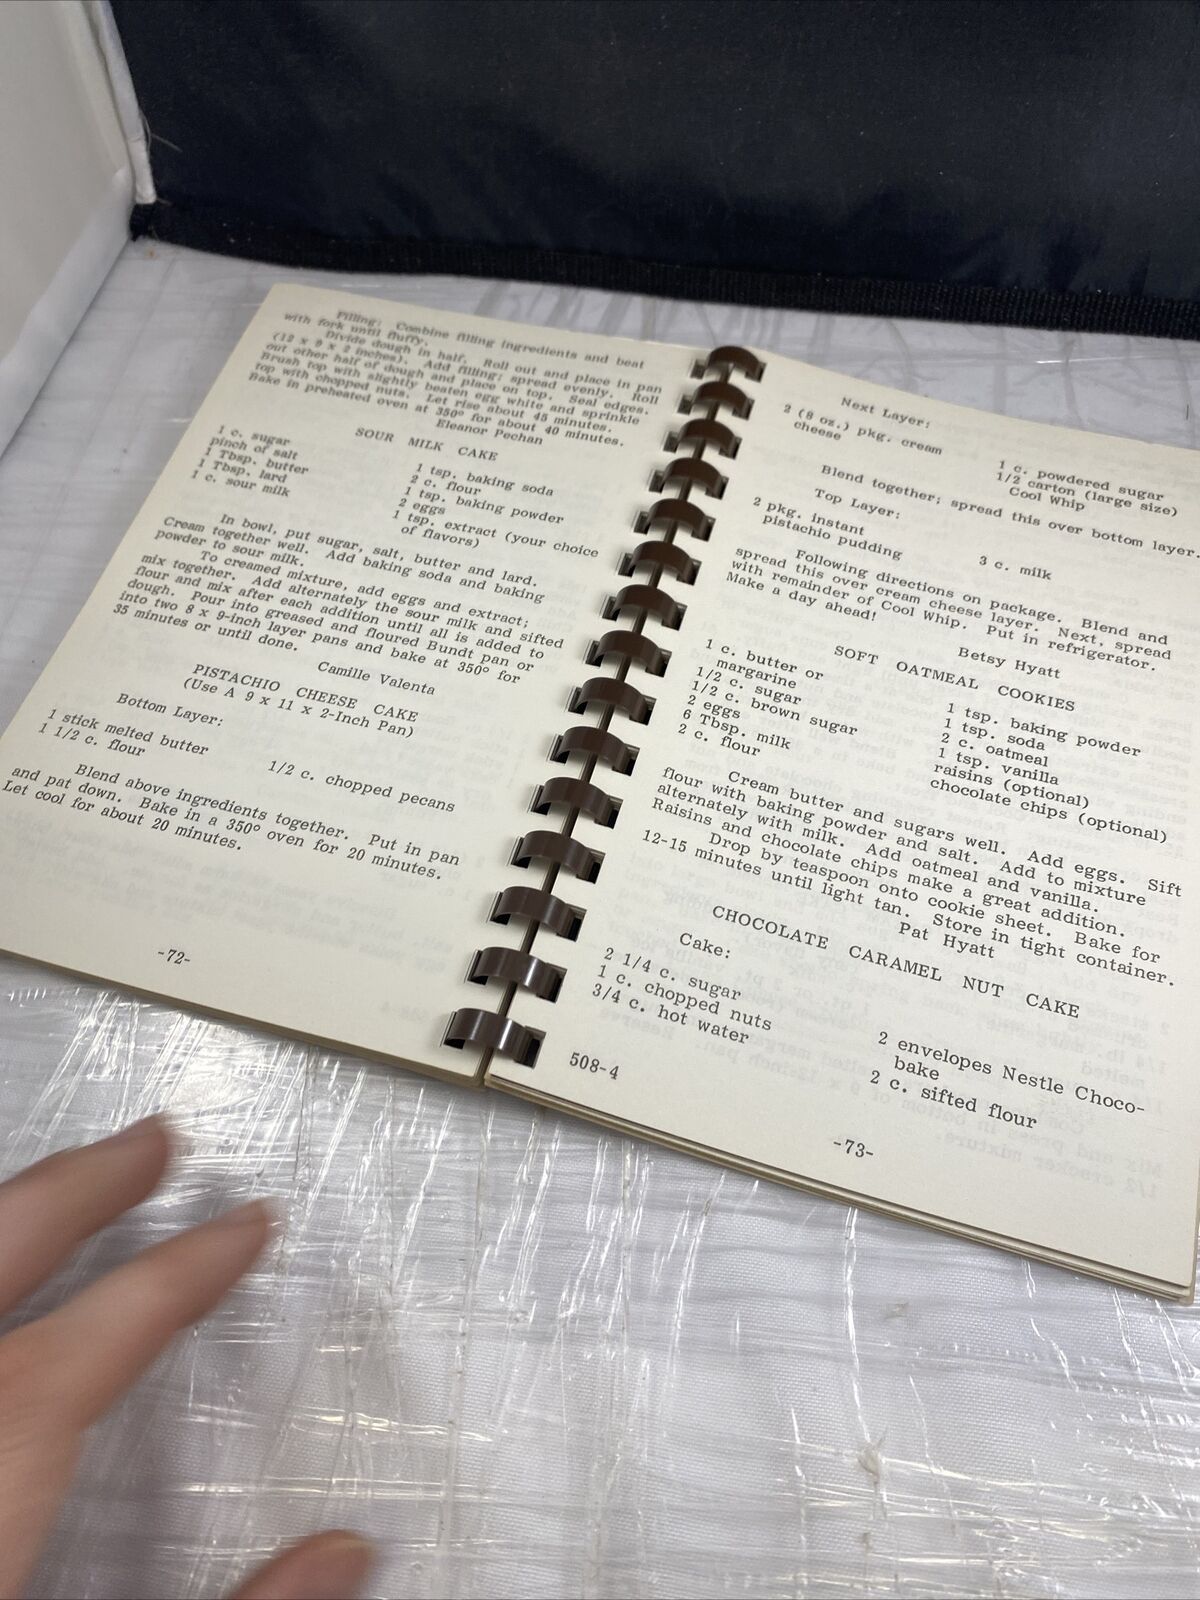 Filling: Combine filling ingredients and beat
with fork until fluffy.
Divide dough in half. Roll out and place in pan
(12 x 9 x 2 inches). Add filling; spread evenly. Roll
out other half of dough and place on top. Seal edges.
Brush top with slightly beaten egg white and sprinkle
top with chopped nuts. Let rise about 45 minutes.
Bake in preheated oven at 350° for about 40 minutes.
Eleanor Pechan
SOUR MILK CAKE
1 c. sugar
pinch of salt
1 Tbsp. butter
1 Tbsp. lard
1 c. sour milk
1 tsp. baking soda
2 c. flour
1 tsp. baking powder
2 eggs
1 tsp. extract (your choice
of flavors)
In bowl, put sugar, salt, butter and lard.
Cream together well. Add baking soda and baking
powder to sour milk.
To creamed mixture, add eggs and extract;
mix together. Add alternately the sour milk and sifted
flour and mix after each addition until all is added to
dough. Pour into greased and floured Bundt pan or
into two 8 x 9-inch layer pans and bake at 350° for
35 minutes or until done.
Camille Valenta
PISTACHIO CHEESE CAKE
(Use A 9 x 11 x 2-Inch Pan)
Bottom Layer:
1 stick melted butter
1 1/2 c. flour
1/2 c. chopped pecans
Blend above ingredients together. Put in pan
and pat down. Bake in a 350° oven for 20 minutes.
Let cool for about 20 minutes.
-72-
Next Layer:
2 (8 oz.) pkg. cream
cheese
1 c. powdered sugar
1/2 carton (large size)
Cool Whip
Blend together; spread this over bottom layer.
Top Layer:
2 pkg. instant
pistachio pudding
3 c. milk
Following directions on package. Blend and
spread this over cream cheese layer. Next, spread
with remainder of Cool Whip. Put in refrigerator.
Make a day ahead!
Betsy Hyatt
SOFT OATMEAL COOKIES
1 c. butter or
margarine
1/2 c. sugar
1/2 c. brown sugar
2 eggs
6 Tbsp. milk
2 c. flour
1 tsp. baking powder
1 tsp. soda
2 c. oatmeal
1 tsp. vanilla
raisins (optional)
chocolate chips (optional)
Cream butter and sugars well. Add eggs. Sift
flour with baking powder and salt. Add to mixture
alternately with milk. Add oatmeal and vanilla.
Raisins and chocolate chips make a great addition.
Drop by teaspoon onto cookie sheet. Bake for
12-15 minutes until light tan. Store in tight container.
Pat Hyatt
CHOCOLATE CARAMEL NUT CAKE
Cake:
2 1/4 c. sugar
1 c. chopped nuts
3/4 c. hot water
2 envelopes Nestle Choco-
bake
2 c. sifted flour
508-4
-73-